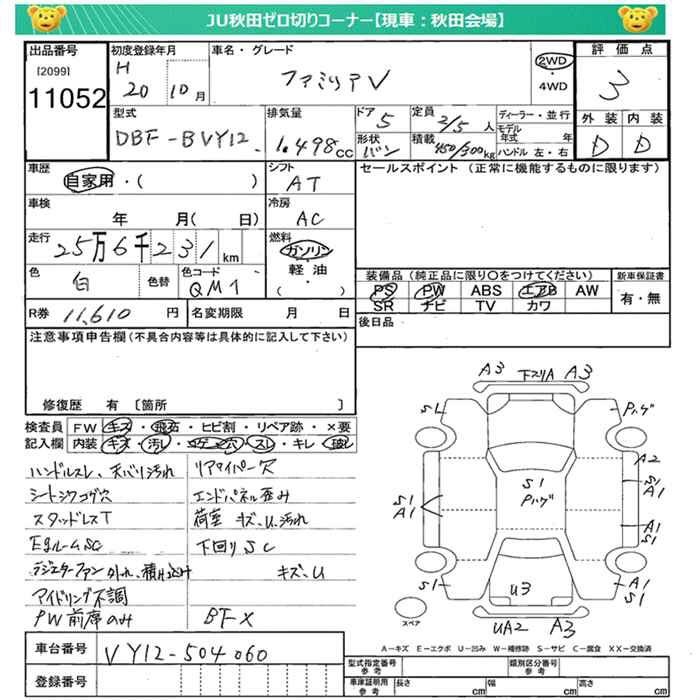 JU秋田ゼロ切りコーナー【現車：秋田会場】
出品番号 初度登録年月 車名・グレード 評価点
[2099] H 20 10月 ファミリアV 2WD ・ 4WD 3
11052
外装 内装
D D
型式 排気量 ドア 定員 ディーラー・並行
DBF-BVY12 1.498cc 5 2/5人 モデル年式 年
形状 積載 ハンドル 左・右
バン 450/300kg
車歴 シフト セールスポイント（正常に機能するものに限ります）
自家用・( ) AT
車検 冷房
年 月( 日) AC
走行 燃料
25万6千231km ガソリン・軽油・( )
色 色替 色コード
白 QM1
装備品（純正品に限り○をつけてください） 新車保証書
PS PW ABS エアB AW 有・無
SR ナビ TV カワ
R券 11,610円 名変期限 月 日
後日品
注意事項申告欄（不具合内容等は具体的に記入して下さい）
修復歴 有 〔箇所 〕
検査員 FW キズ・飛石・ヒビ割・リペア跡・×要
記入欄 内装 キズ・汚レ・コゲ穴・スレ・キレ・破レ
ハンドルスレ、天バリ汚れ リアワイパー欠
シートシワコゲ穴 エンドパネル歪み
スタッドレスT 荷室 キズ、U、汚れ
Egルーム SC 下回りSC
ラジエターファン外れ、積み込み キズ、U
アイドリング不調
PW前席のみ BF×
車台番号 VY12-504060
登録番号
A3 下スリA A3
S1 Pハゲ
A2
S1 Pハゲ
S1 A1
S1 A1
A1 S1
S1
U3
A1 S1
スペア
UA2 A3
A-キズ E-エクボ U-凹み W-補修跡 S-サビ C-腐食 XX-交換済
型式指定番号 参考 類別区分番号 参考
車庫証明用 参考 長さ cm 幅 cm 高さ cm